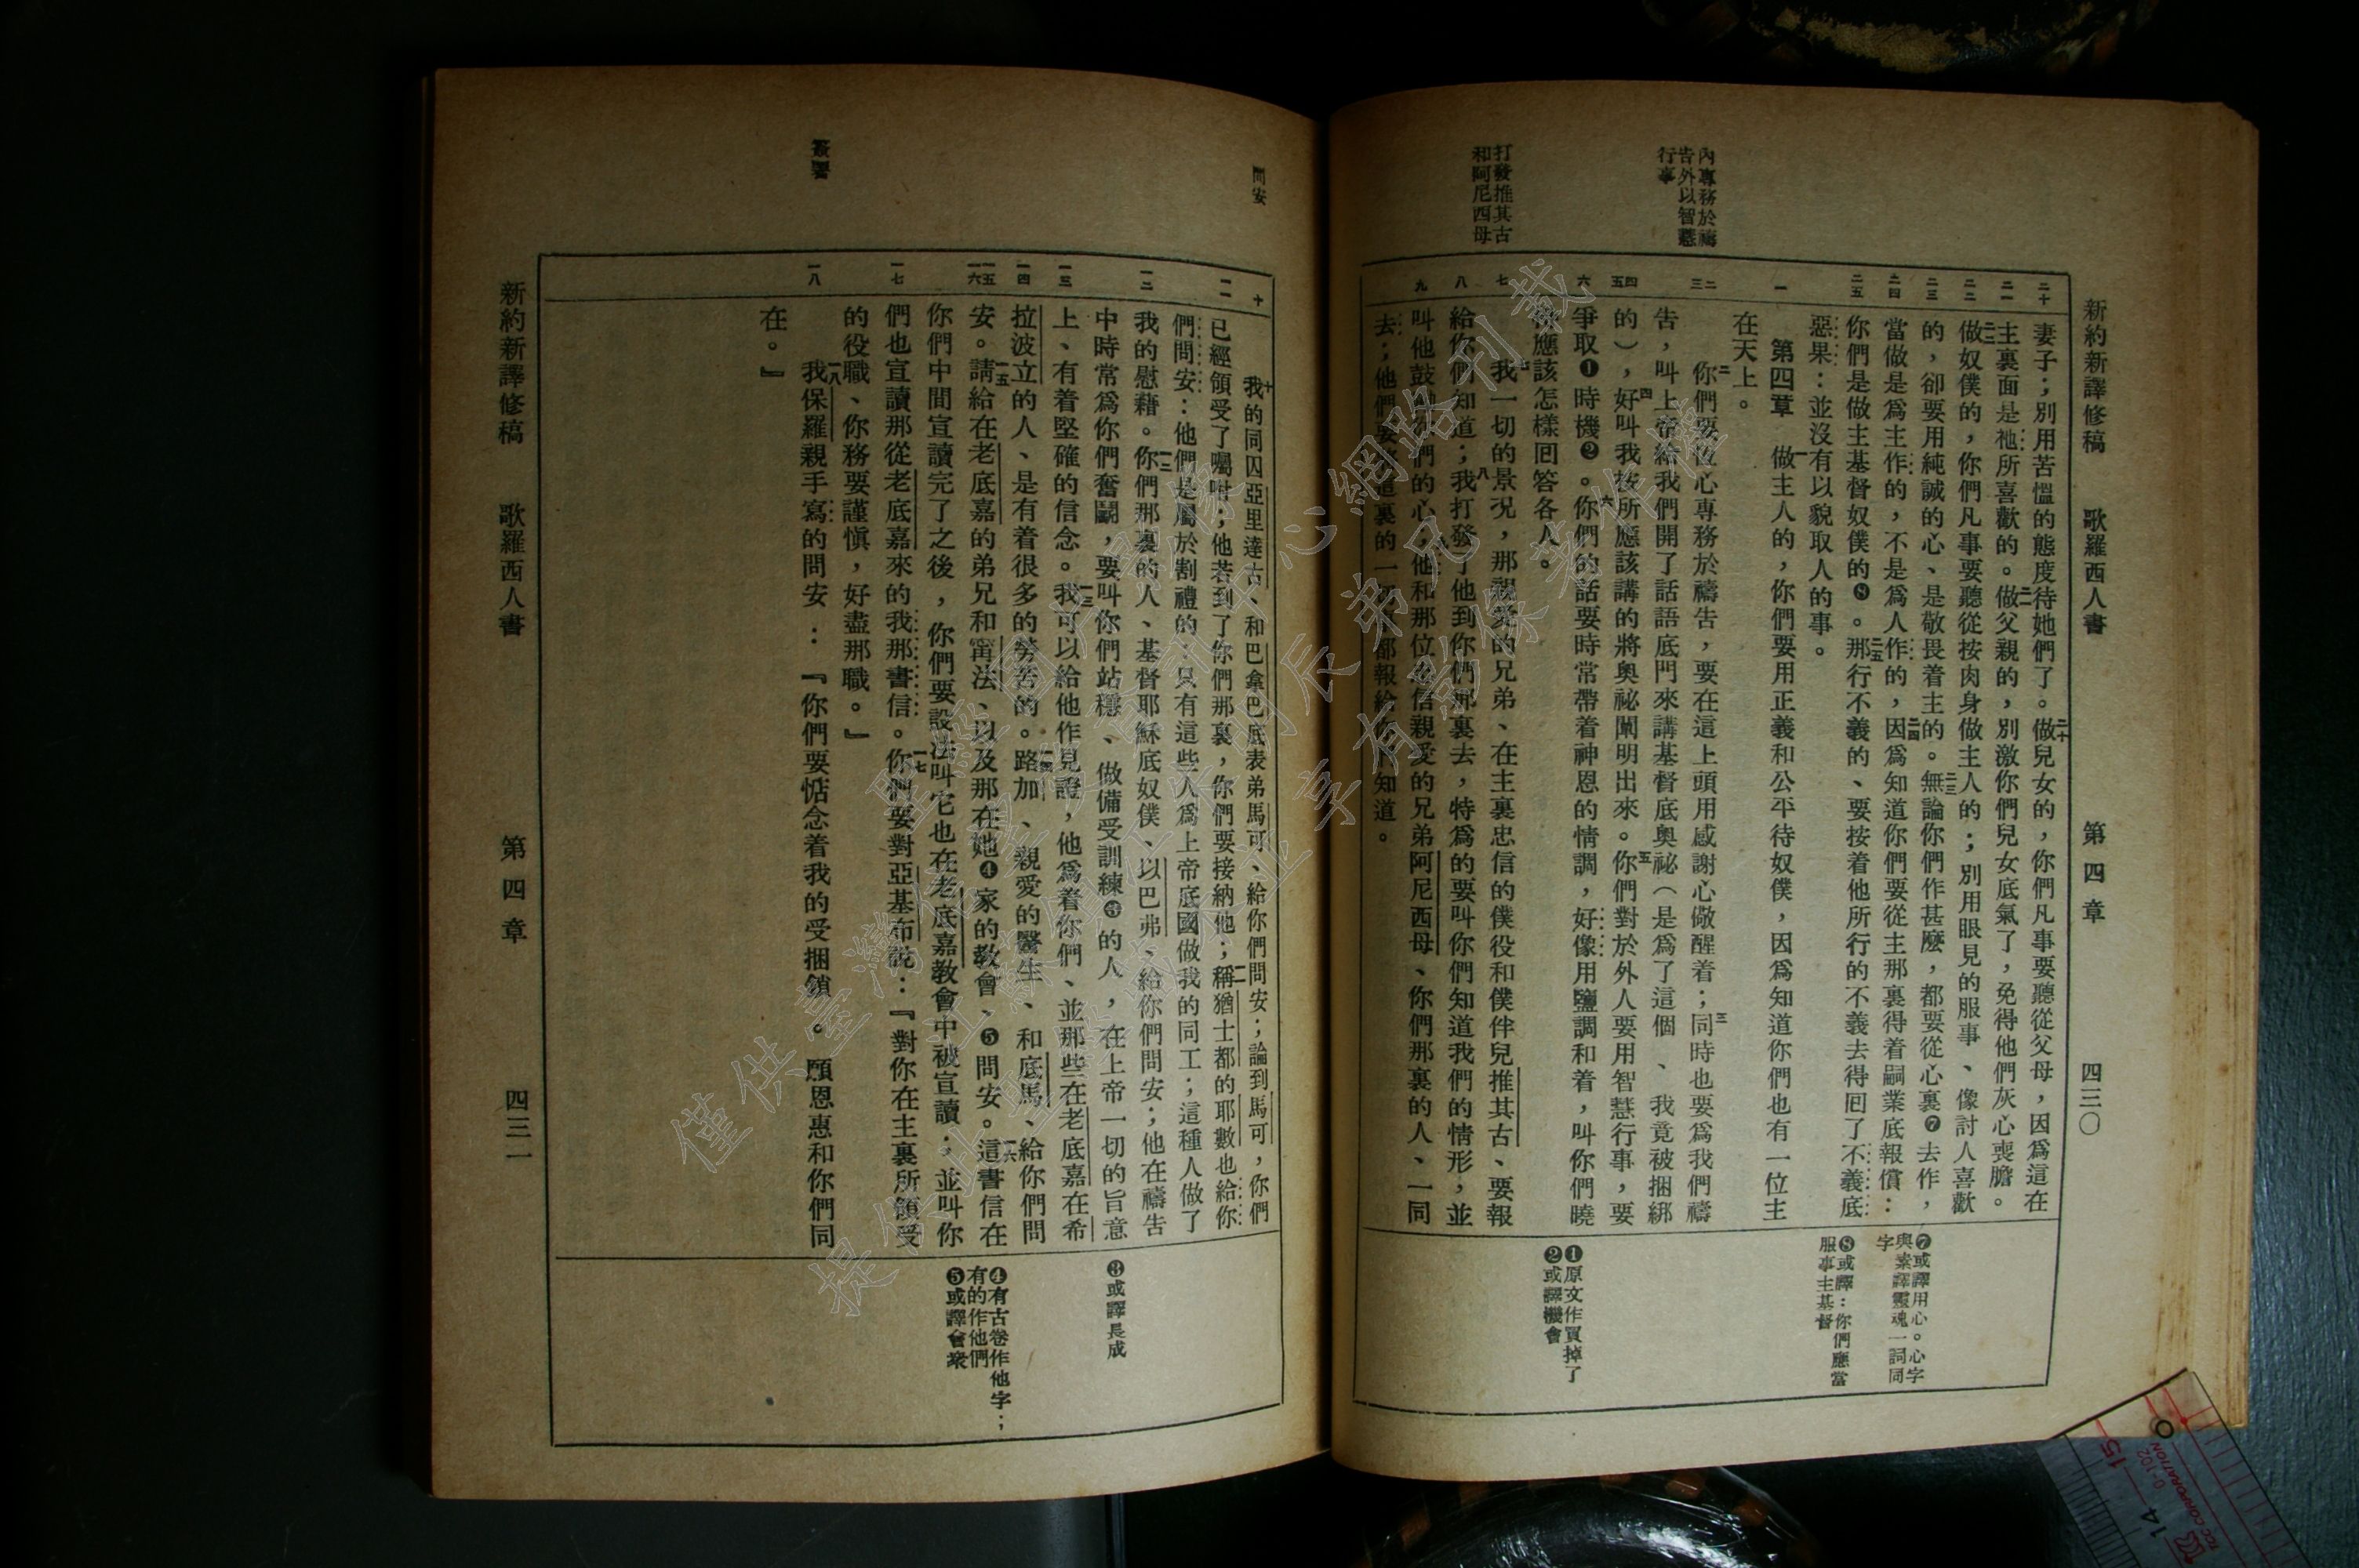 新約新譯修稿　歌羅西人書　第四章　四三〇
內專務於禱
告外以智慧
行事
打發推其古
和阿尼西母
二十
二一
二二
二三
二四
二五
一
二
三
四
五
六
七
八
九
妻子；別用苦慍的態度待她們了。二十做兒女的，你們凡事要聽從父母，因爲這在
主裏面是祂所喜歡的。二一做父親的，別激你們兒女底氣了，免得他們灰心喪膽。
二二做奴僕的，你們凡事要聽從按肉身做主人的；別用眼見的服事、像討人喜歡
的，卻要用純誠的心、是敬畏着主的。二三無論你們作甚麼，都要從心裏❼去作，
當做是爲主作的，不是爲人作的，二四因爲知道你們要從主那裏得着嗣業底報償：
你們是做主基督奴僕的❽。二五那行不義的、要按着他所行的不義去得回了不義底
惡果：並沒有以貌取人的事。
第四章　一做主人的，你們要用正義和公平待奴僕，因爲知道你們也有一位主
在天上。
二你們要恆心專務於禱告，要在這上頭用感謝心儆醒着；三同時也要爲我們禱
告，叫上帝給我們開了話語底門來講基督底奧祕（是爲了這個、我竟被捆綁
的），四好叫我按所應該講的將奧祕闡明出來。五你們對於外人要用智慧行事，要
爭取❶時機❷。六你們的話要時常帶着神恩的情調，好像用鹽調和着，叫你們曉
得應該怎樣回答各人。
七我一切的景況，那親愛的兄弟、在主裏忠信的僕役和僕伴兒推其古、要報
給你們知道；八我打發了他到你們那裏去，特爲的要叫你們知道我們的情形，並
叫他鼓勵你們的心；九他和那位忠信親愛的兄弟阿尼西母、你們那裏的人、一同
去；他們要將這裏的一切都報給你們知道。
❼或譯用心。心字
與素譯靈魂一詞同
字
❽或譯：你們應當
服事主基督
❶原文作買掉了
❷或譯機會
問安
簽署
十
一一
一二
一三
一四
一五
一六
一七
一八
十我的同囚亞里達古、和巴拿巴底表弟馬可、給你們問安；論到馬可，你們
已經領受了囑咐；他若到了你們那裏，你們要接納他；一一稱猶士都的耶數也給你
們問安：他們是屬於割禮的：只有這些人爲上帝底國做我的同工；這種人做了
我的慰藉。一二你們那裏的人、基督耶穌底奴僕、以巴弗、給你們問安；他在禱告
中時常爲你們奮鬭，要叫你們站穩、做備受訓練❸的人，在上帝一切的旨意
上、有着堅確的信念。一三我可以給他作見證，他爲着你們、並那些在老底嘉在希
拉波立的人、是有着很多的勞苦的。一四路加、親愛的醫生、和底馬、給你們問
安。一五請給在老底嘉的弟兄和甯法、以及那在她❹家的教會、❺問安。一六這書信在
你們中間宣讀完了之後，你們要設法叫它也在老底嘉教會中被宣讀；並叫你
們也宣讀那從老底嘉來的我那書信。一七你們要對亞基布說：『對你在主裏所領受
的役職、你務要謹愼，好盡那職。』
一八我保羅親手寫的問安：『你們要惦念着我的受捆鎖。願恩惠和你們同
在。』
❸或譯長成
❹有古卷作他字；
有的作他們
❺或譯會衆
新約新譯修稿　歌羅西人書　第四章　四三一
15
14